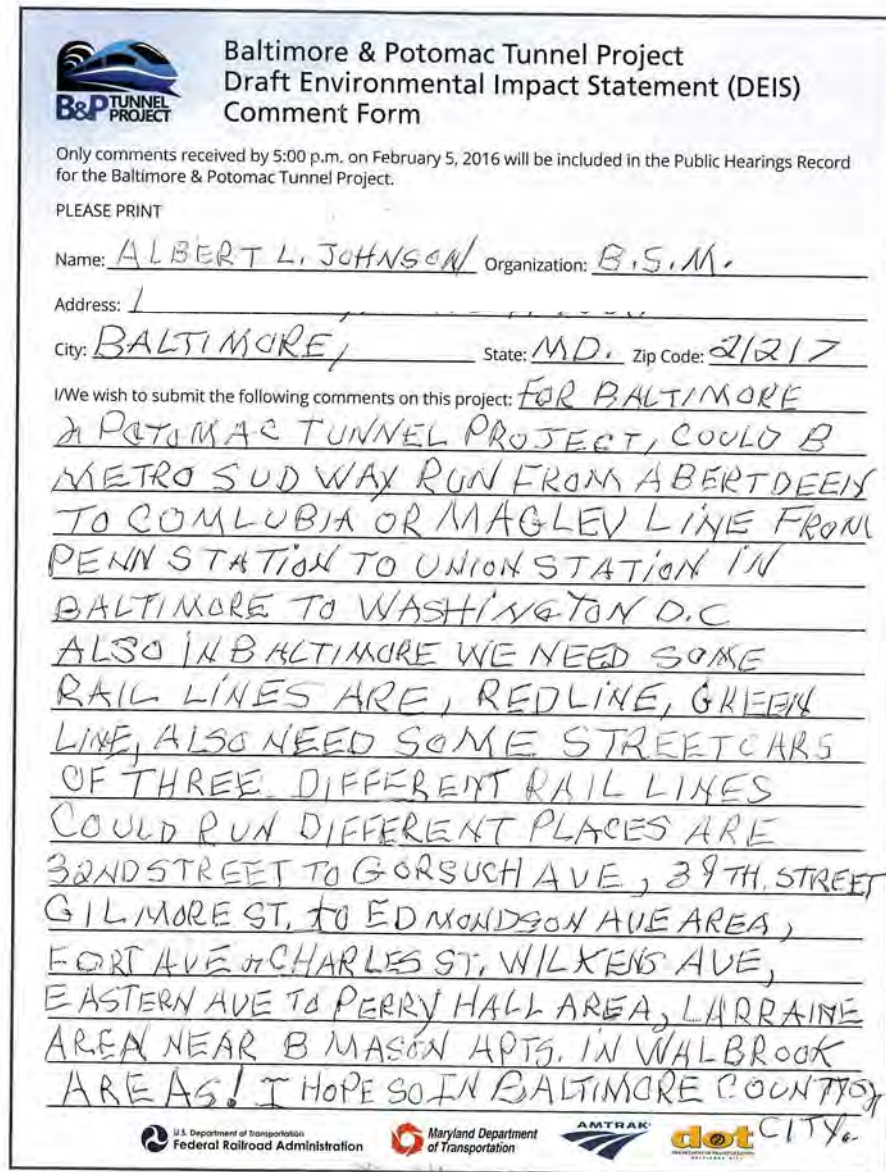 B&P TUNNEL PROJECT
Baltimore & Potomac Tunnel Project
Draft Environmental Impact Statement (DEIS)
Comment Form
Only comments received by 5:00 p.m. on February 5, 2016 will be included in the Public Hearings Record
for the Baltimore & Potomac Tunnel Project.
PLEASE PRINT
Name: ALBERT L. JOHNSON Organization: B.S.M.
Address:
City: BALTIMORE, State: MD. Zip Code: 21217
I/We wish to submit the following comments on this project: FOR BALTIMORE
& POTOMAC TUNNEL PROJECT, COULD B
METRO SUDWAY RUN FROM ABERTDEEN
TO COMLUBIA OR MAGLEV LINE FROM
PENN STATION TO UNION STATION IN
BALTIMORE TO WASHINGTON D.C
ALSO IN BALTIMORE WE NEED SOME
RAIL LINES ARE, REDLINE, GREEN
LINE, ALSO NEED SOME STREETCARS
OF THREE DIFFERENT RAIL LINES
COULD RUN DIFFERENT PLACES ARE
32ND STREET TO GORSUCH AVE, 39TH. STREET
GILMORE ST. TO EDMONDSON AVE AREA,
FORT AVE or CHARLES ST. WILKENS AVE,
EASTERN AVE TO PERRY HALL AREA, LARRAINE
AREA NEAR B MASON APTS. IN WALBROOK
AREAS! I HOPE SO IN BALTIMORE COUNTY or
CITY.
U.S. Department of Transportation
Federal Railroad Administration
Maryland Department
of Transportation
AMTRAK
dot